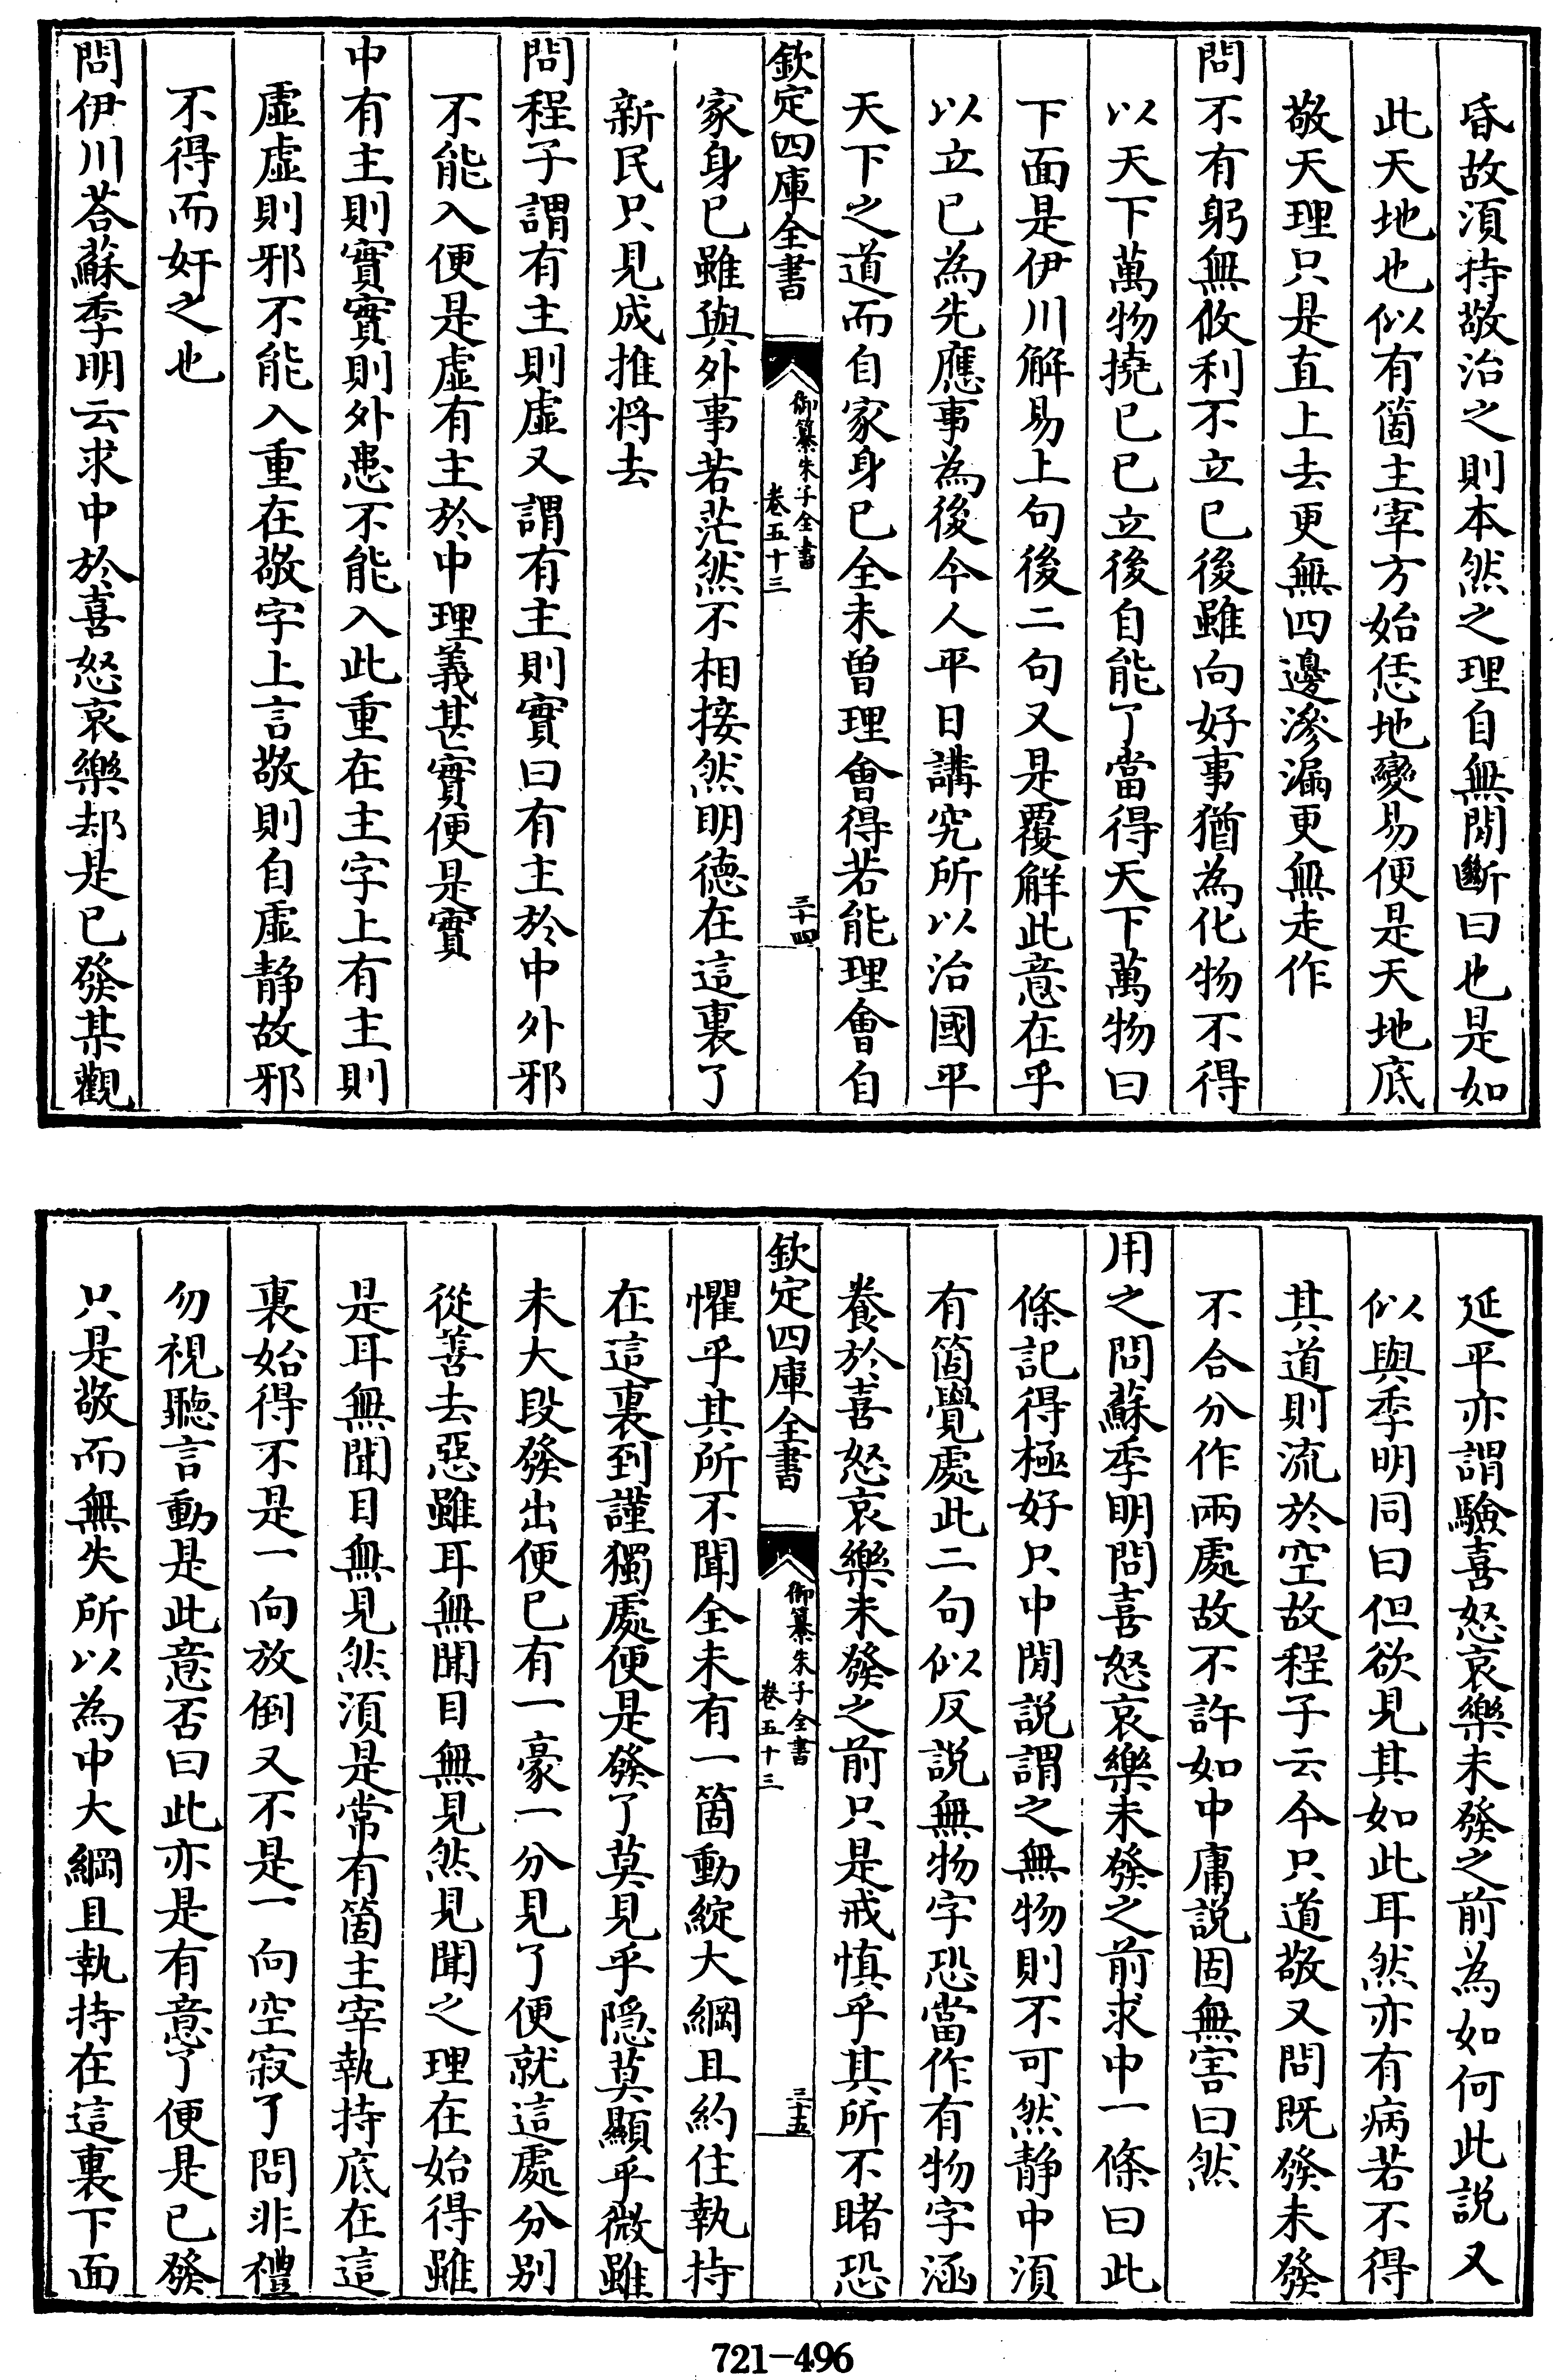 昏故須持敬治之則本然之理自無間斷曰也是如
此天地也似有箇主宰方始恁地變易便是天地底
敬天理只是直上去更無四邊滲漏更無走作
問不有躬無攸利不立已後雖向好事猶為化物不得
以天下萬物撓已已立後自能了當得天下萬物曰
下面是伊川解易上句後二句又是覆解此意在乎
以立已為先應事為後今人平日講究所以治國平
天下之道而自家身已全未曾理會得若能理會自
欽定四庫全書
御纂朱子全書
卷五十三
三十四
家身已雖與外事若茫然不相接然明德在這裏了
新民只見成推將去
問程子謂有主則虛又謂有主則實曰有主於中外邪
不能入便是虛有主於中理義甚實便是實
中有主則實實則外患不能入此重在主字上有主則
虛虛則邪不能入重在敬字上言敬則自虛靜故邪
不得而奸之也
問伊川荅蘇季明云求中於喜怒哀樂却是已發某觀
延平亦謂驗喜怒哀樂未發之前為如何此説又
似與季明同曰但欲見其如此耳然亦有病若不得
其道則流於空故程子云今只道敬又問既發未發
不合分作兩處故不許如中庸説固無害曰然
用之問蘇季明問喜怒哀樂未發之前求中一條曰此
條記得極好只中間説謂之無物則不可然靜中須
有箇覺處此二句似反説無物字恐當作有物字涵
養於喜怒哀樂未發之前只是戒慎乎其所不睹恐
欽定四庫全書
御纂朱子全書
卷五十三
三十五
懼乎其所不聞全未有一箇動綻大綱且約住執持
在這裏到謹獨處便是發了莫見乎隱莫顯乎微雖
未大段發出便已有一豪一分見了便就這處分别
從善去惡雖耳無聞目無見然見聞之理在始得雖
是耳無聞目無見然須是常有箇主宰執持底在這
裏始得不是一向放倒又不是一向空寂了問非禮
勿視聽言動是此意否曰此亦是有意了便是已發
只是敬而無失所以為中大綱且執持在這裏下面
721-496